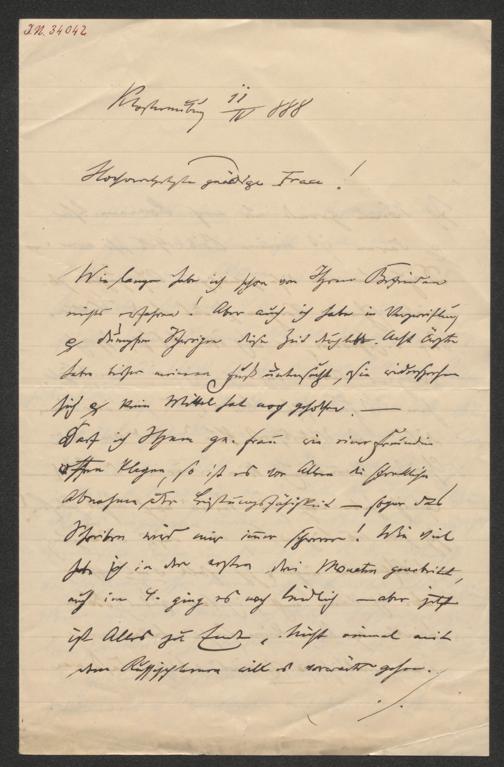 I.N. 34042
Klosterneuburg 11/IV 888
Hochverehrteste gnädige Frau!
Wie lange habe ich schon von Ihrem Befinden
nichts erfahren! Aber auch ich habe in Verzweiflung
& dumpfem Schweigen diese Zeit durchlebt. Acht Ärzte
haben bisher meinen Fuß untersucht, sie widersprechen
sich & kein Mittel hat noch geholfen. —
Darf ich Ihnen gn. Frau wie einer Freundin
offen klagen, so ist es vor Allem die schreckliche
Abnahme der Leistungsfähigkeit — sogar das
Schreiben wird mir immer schwerer! Wie viel
habe ich in den ersten drei Monaten gearbeitet,
auch im 4. ging es noch leidlich — aber jetzt
ist Alles zu Ende, nicht einmal mit
dem Russischlernen will es vorwärts gehen.
./.